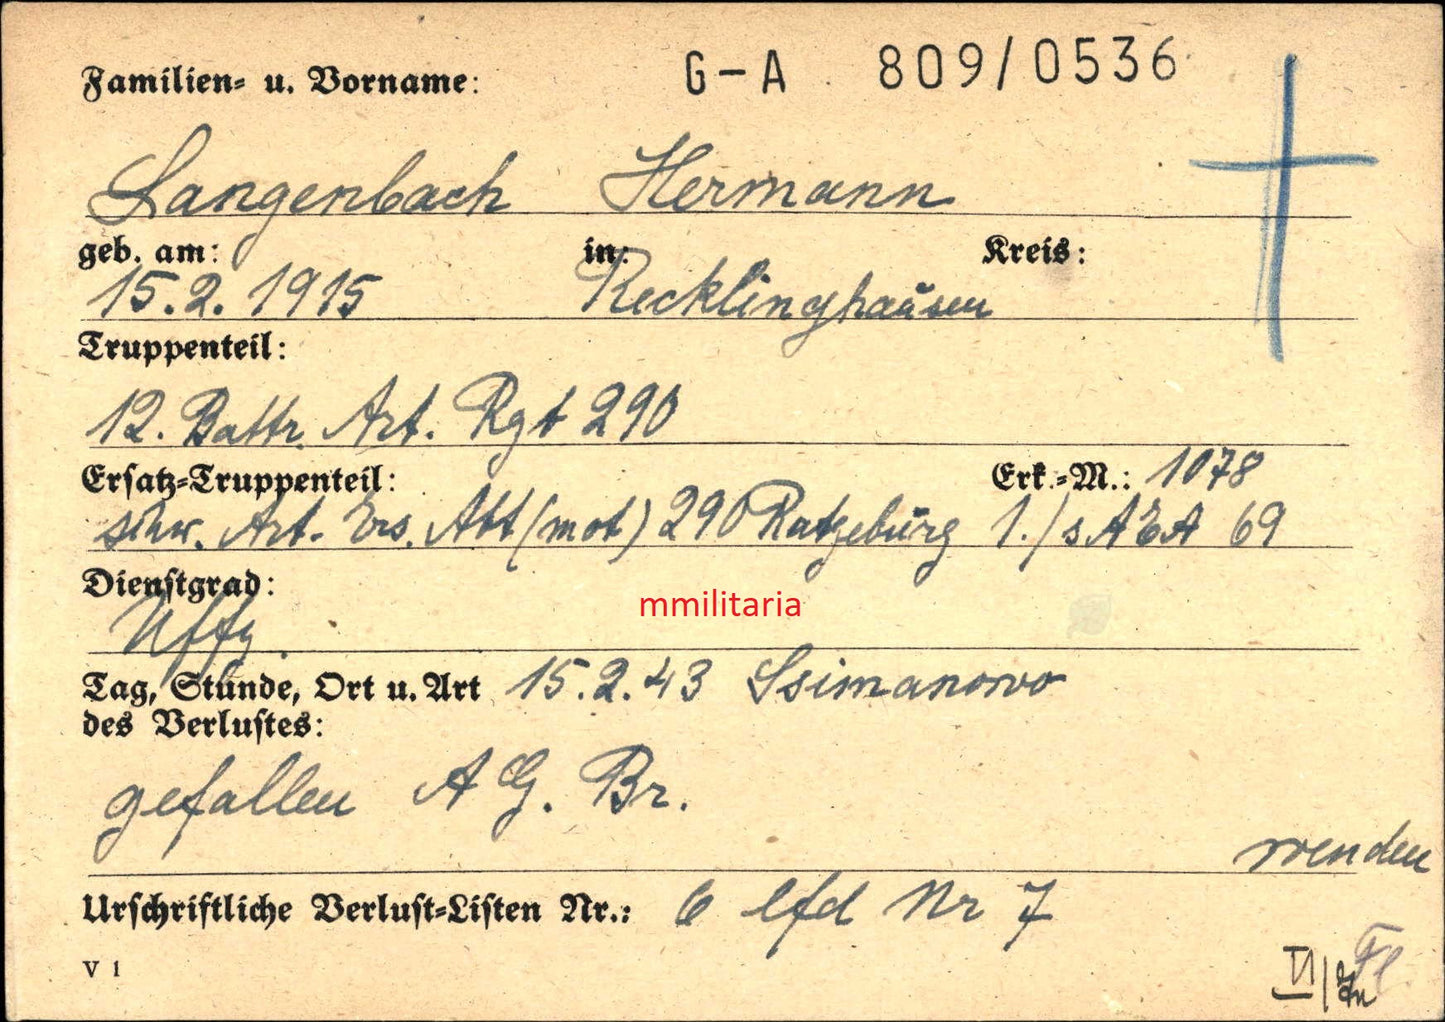 Familien- u. Vorname: G-A 809/0536
Langenbach Hermann
geb. am: in: Kreis:
15.2.1915 Recklinghausen
Truppenteil:
12. Battr. Art. Rgt 290
Ersatz-Truppenteil: Erk.-M.: 1078
schw. Art. Ers. Abt (mot) 290 Ratzeburg 1./s.AEA 69
Dienstgrad:
mmilitaria
Uffz.
Tag, Stunde, Ort u. Art 15.2.43 Ssimanowo
des Verlustes:
gefallen A G. Br.
wenden
Urschriftliche Verlust-Listen Nr.: 6 lfd Nr 7
V 1